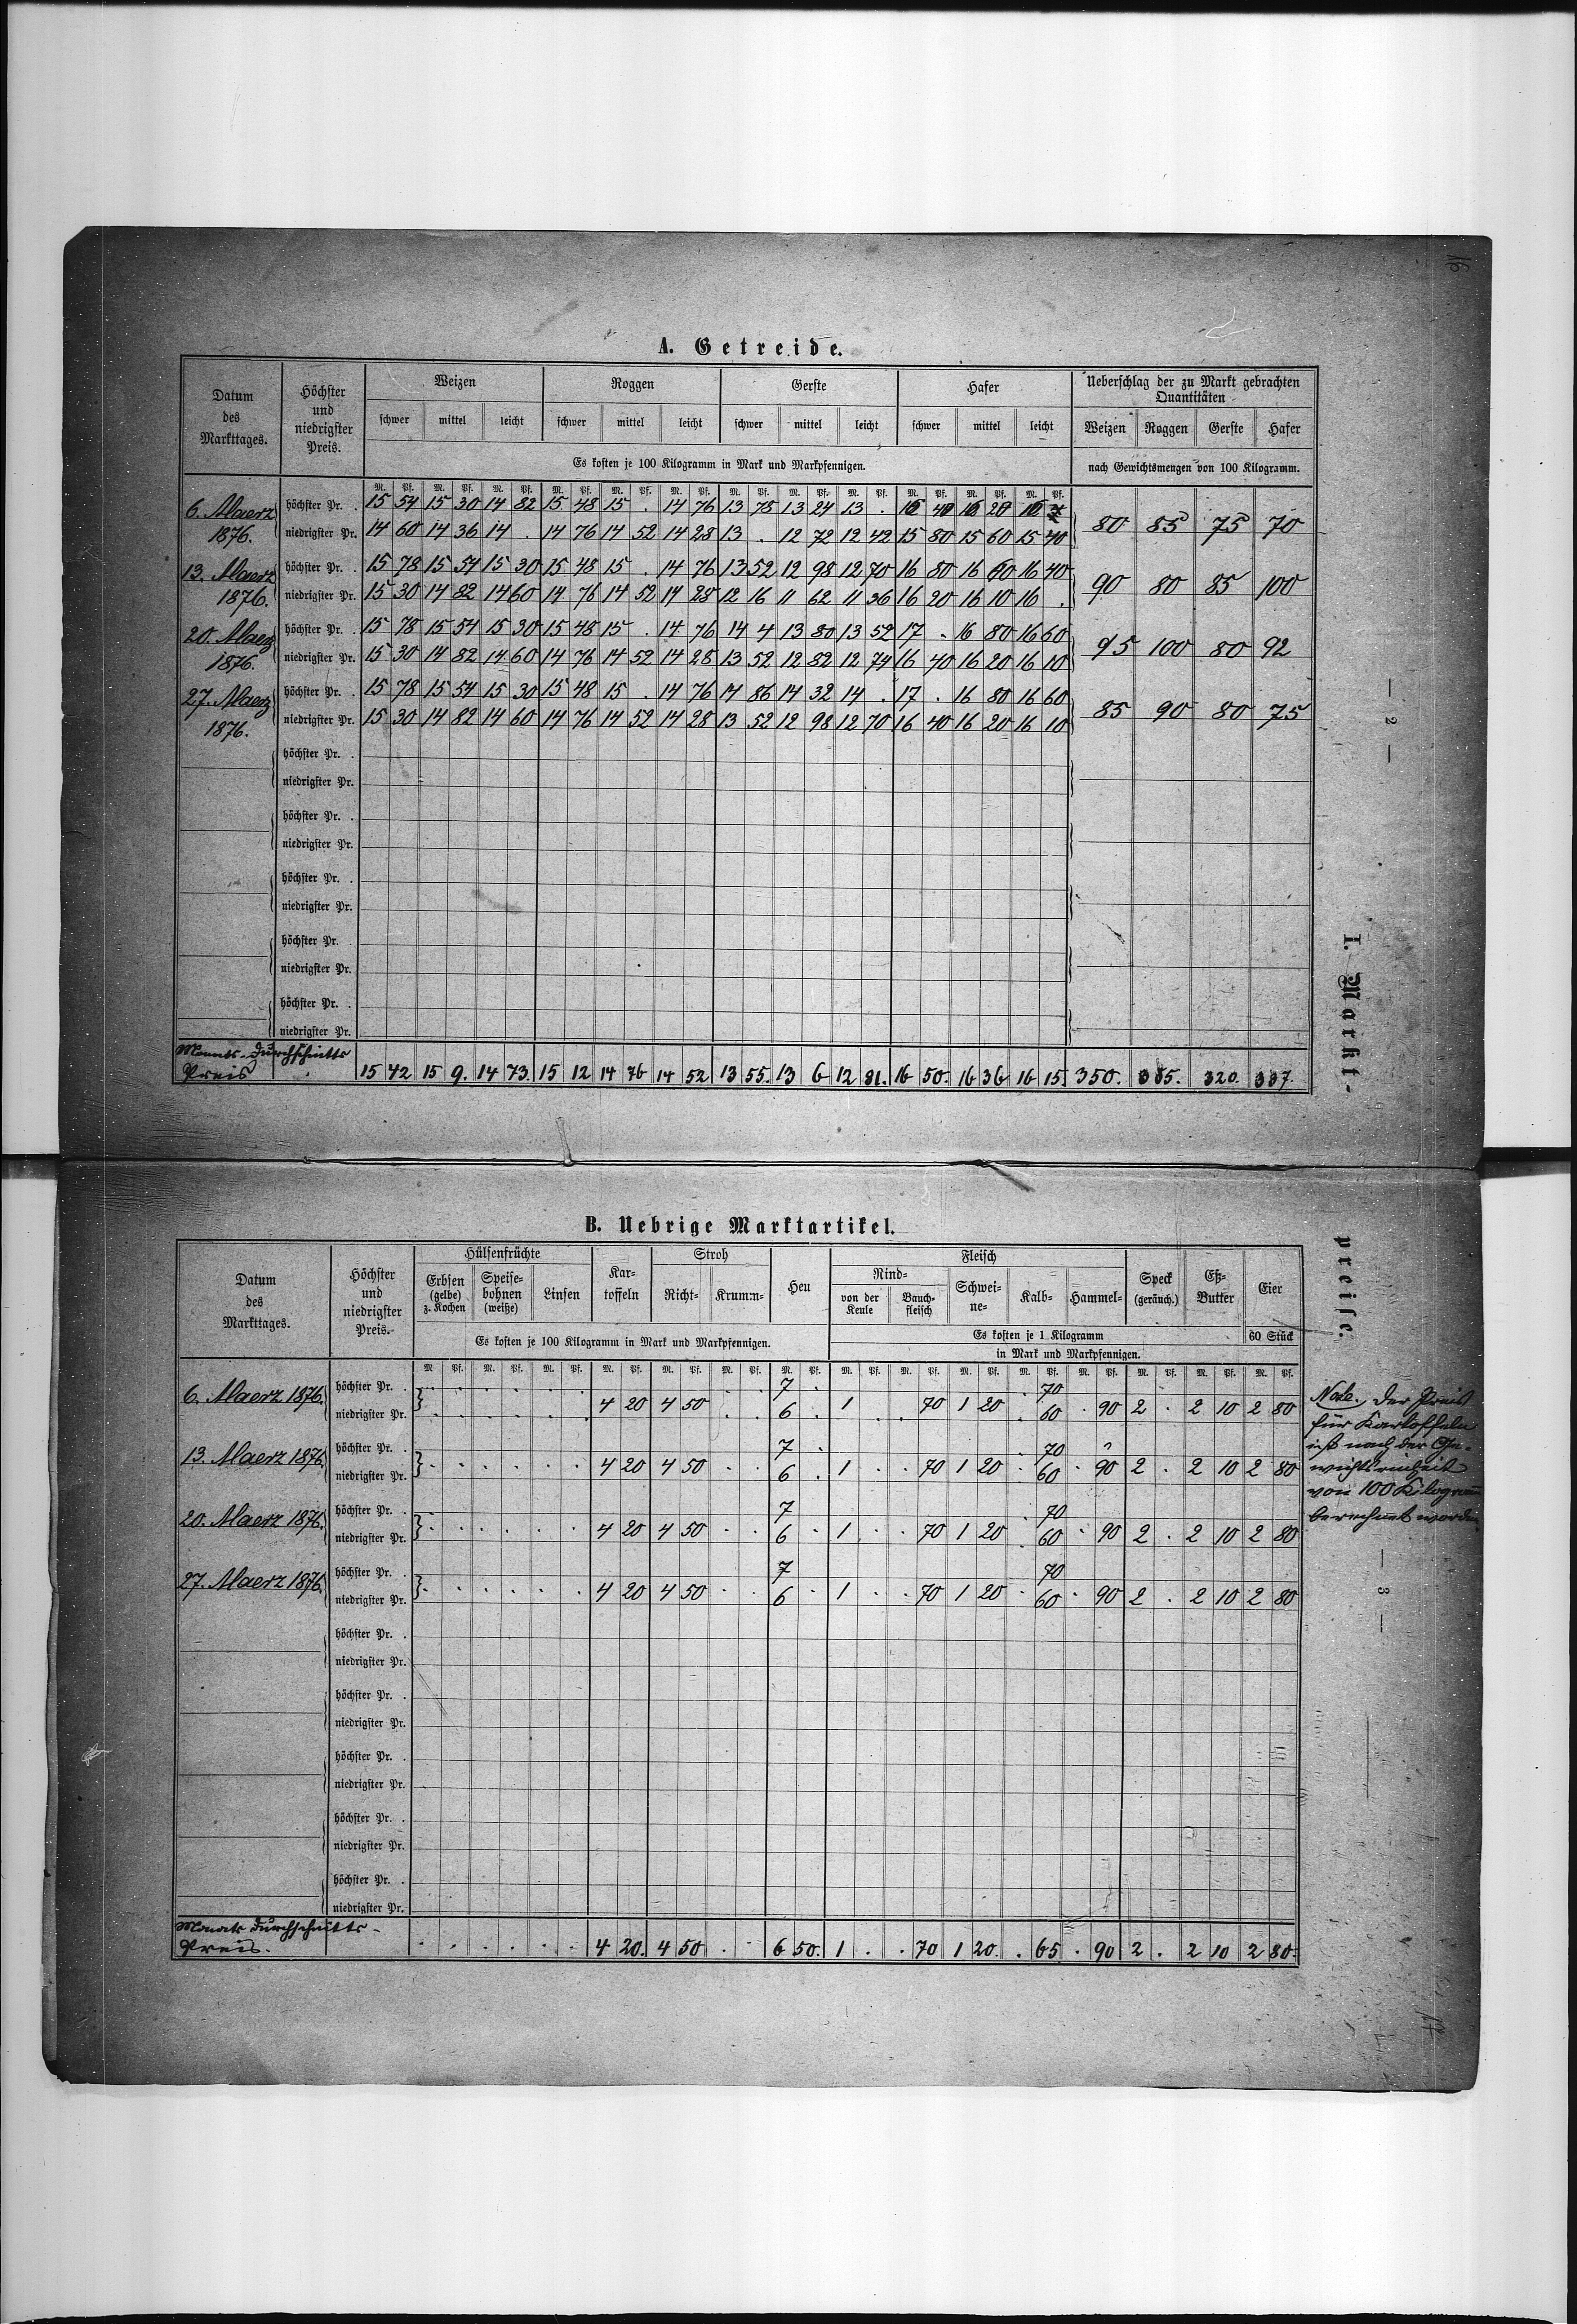 A. Getreide.
Datum des Markttages. | Höchster und niedrigster Preis. | Weizen | Roggen | Gerste | Hafer | Ueberschlag der zu Markt gebrachten Quantitäten
schwer | mittel | leicht | schwer | mittel | leicht | schwer | mittel | leicht | schwer | mittel | leicht | Weizen | Roggen | Gerste | Hafer
Es kosten je 100 Kilogramm in Mark und Markpfennigen. | nach Gewichtsmengen von 100 Kilogramm.
M. Pf. M. Pf. M. Pf. M. Pf. M. Pf. M. Pf. M. Pf. M. Pf. M. Pf. M. Pf. M. Pf. M. Pf.
6. Maerz 1876. höchster Pr. . 15 54 15 30 14 82 15 48 15 . 14 76 13 78 13 24 13 . 16 40 16 20 16
niedrigster Pr. 14 60 14 36 14 . 14 76 14 52 14 28 13 . 12 72 12 42 15 80 15 60 15 40 | 80 85 75 70
13. Maerz 1876. höchster Pr. . 15 78 15 54 15 30 15 48 15 . 14 76 13 52 12 98 12 70 16 80 16 60 16 40
niedrigster Pr. 15 30 14 82 14 60 14 76 14 52 14 28 12 16 11 62 11 36 16 20 16 10 16 . | 90 80 85 100
20. Maerz 1876. höchster Pr. . 15 78 15 54 15 30 15 48 15 . 14 76 14 4 13 80 13 52 17 . 16 80 16 60
niedrigster Pr. 15 30 14 82 14 60 14 76 14 52 14 28 13 52 12 82 12 74 16 40 16 20 16 10 | 95 100 80 92
27. Maerz 1876. höchster Pr. . 15 78 15 54 15 30 15 48 15 . 14 76 14 86 14 32 14 . 17 . 16 80 16 60
niedrigster Pr. 15 30 14 82 14 60 14 76 14 52 14 28 13 52 12 98 12 70 16 40 16 20 16 10 | 85 90 80 75
höchster Pr. .
niedrigster Pr.
höchster Pr. .
niedrigster Pr.
höchster Pr. .
niedrigster Pr.
höchster Pr. .
niedrigster Pr.
höchster Pr. .
niedrigster Pr.
Monats-Durchschnitts
Preis 15 42 15 9. 14 73. 15 12 14 76 14 52 13 55. 13 6 12 81. 16 50. 16 36 16 15. 350. 320. 337.
— 2 —
I. Markt-
B. Uebrige Marktartikel.
Datum des Markttages. | Höchster und niedrigster Preis. | Hülsenfrüchte | Kar-toffeln | Stroh | Heu | Fleisch | Speck (geräuch.) | Eß-Butter | Eier
Erbsen (gelbe) z. Kochen | Speise-bohnen (weiße) | Linsen | Richt- | Krumm- | Rind- von der Keule | Bauch-fleisch | Schwei-ne- | Kalb- | Hammel-
Es kosten je 100 Kilogramm in Mark und Markpfennigen. | Es kosten je 1 Kilogramm | 60 Stück
in Mark und Markpfennigen.
M. Pf. M. Pf. M. Pf. M. Pf. M. Pf. M. Pf. M. Pf. M. Pf. M. Pf. M. Pf. M. Pf. M. Pf. M. Pf. M. Pf. M. Pf.
6. Maerz 1876. höchster Pr. . 7 . 70
niedrigster Pr. 4 20 4 50 . . 6 . 1 . . 70 1 20 . 60 . 90 2 . 2 10 2 80
13. Maerz 1876. höchster Pr. . 7 . 70
niedrigster Pr. 4 20 4 50 . . 6 . 1 . . 70 1 20 . 60 . 90 2 . 2 10 2 80
20. Maerz 1876. höchster Pr. . 7 . 70
niedrigster Pr. 4 20 4 50 . . 6 . 1 . . 70 1 20 . 60 . 90 2 . 2 10 2 80
27. Maerz 1876. höchster Pr. . 7 70
niedrigster Pr. 4 20 4 50 . . 6 . 1 . . 70 1 20 . 60 . 90 2 . 2 10 2 80
höchster Pr. .
niedrigster Pr.
höchster Pr. .
niedrigster Pr.
höchster Pr. .
niedrigster Pr.
höchster Pr. .
niedrigster Pr.
höchster Pr. .
niedrigster Pr.
Monats Durchschnitts-
Preis. 4 20. 4 50 . . 6 50. 1 . . 70 1 20. . 65 . 90 2 . 2 10 2 80.
preise.
Note. Der Preis
für Kartoffeln
ist nach der Ge-
wichtseinheit
von 100 Kilogramm
berechnet worden
— 3 —